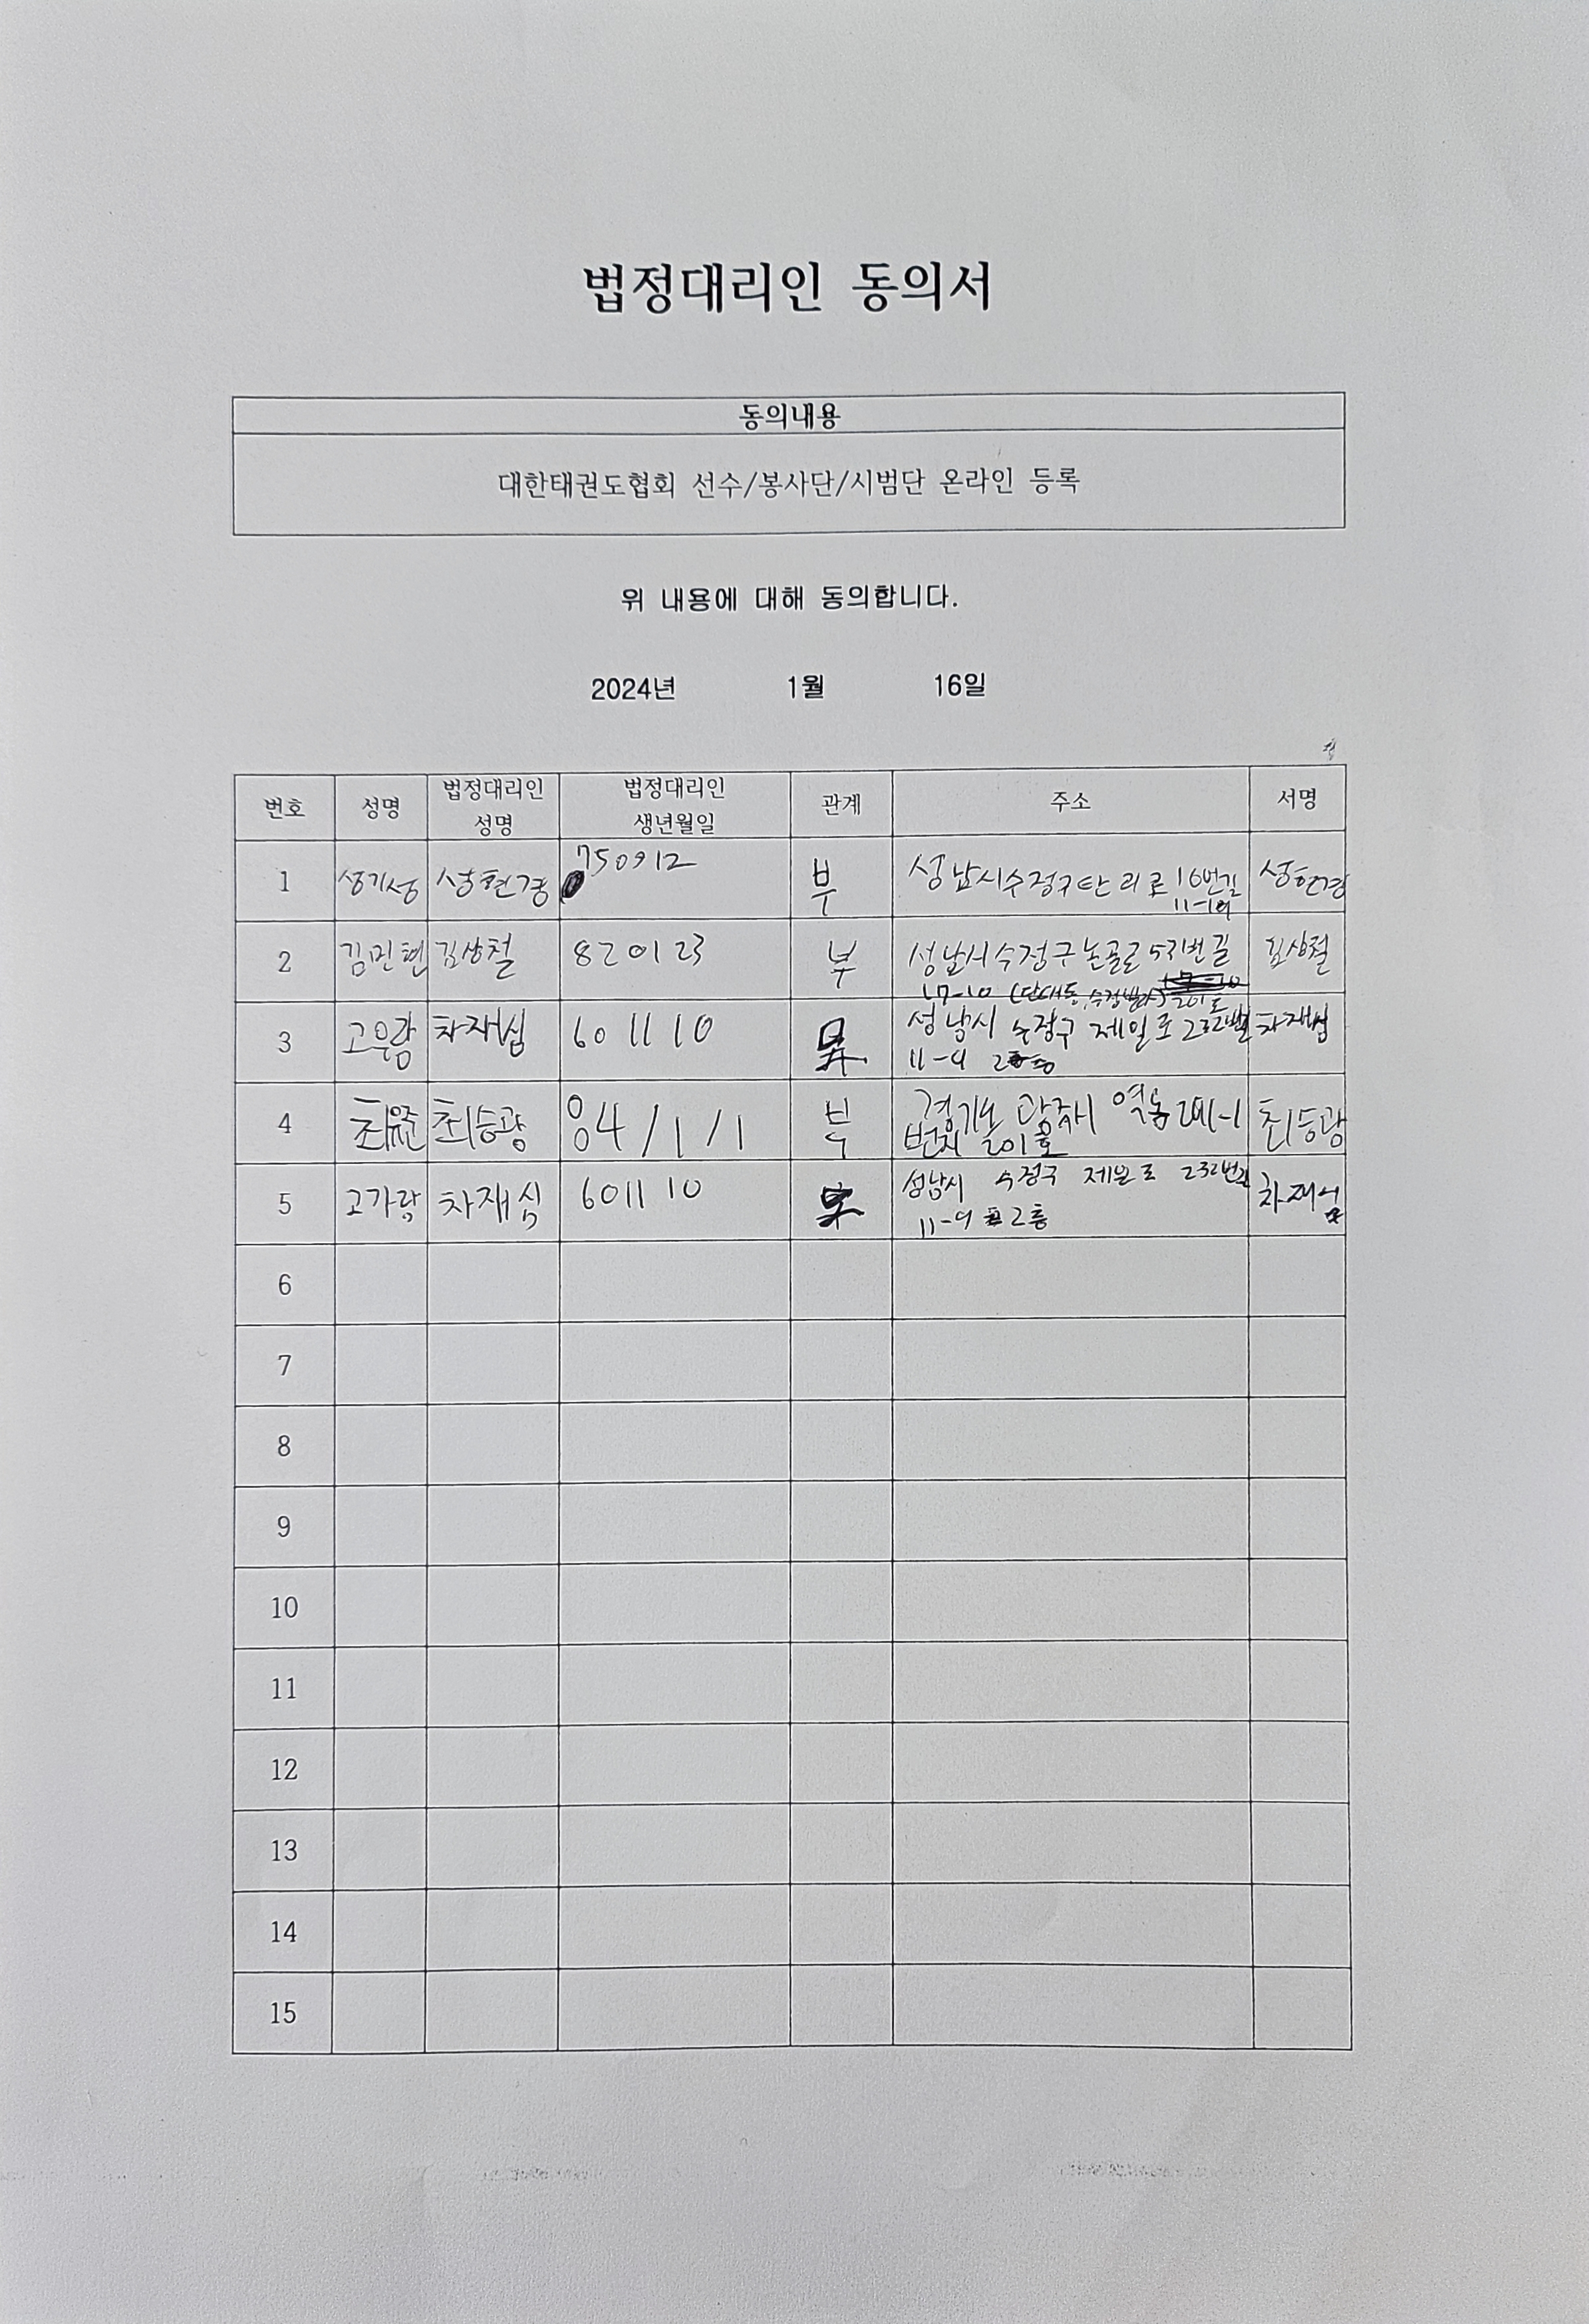 법정대리인 동의서
동의내용
대한태권도협회 선수/봉사단/시범단 온라인 등록
위 내용에 대해 동의합니다.
2024년 1월 16일
번호 성명 법정대리인 성명 법정대리인 생년월일 관계 주소 서명
1 성기성 성현경 750912 부 성남시수정구탄리로 16번길 성현경
2 김민현 김상철 820123 부 성남시수정구논골로 번길 김상철
17-10 (단대동,
3 차재심 601110 성남시 수정구 제일로 232번길 차재심
11-9 2층
4 최유준 최승광 84/1/1 부 경기도 광주시 최승광
번지 201호
5 고가람 차재심 601110 성남시 수정구 제일로 232번길 차재심
11-9 2층
6
7
8
9
10
11
12
13
14
15